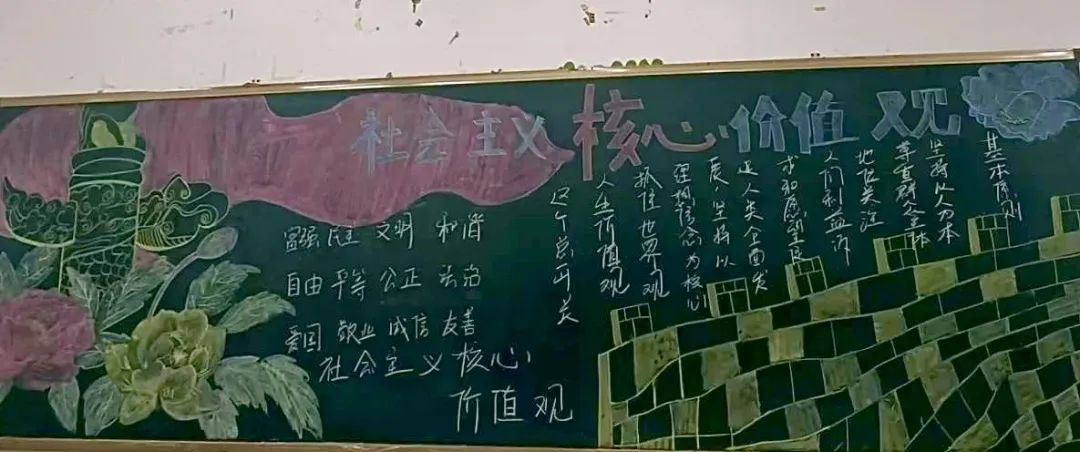 社会主义核心价值观
富强 民主 文明 和谐
自由 平等 公正 法治
爱国 敬业 诚信 友善
社会主义核心
价值观
基本原则
坚持以人为本
尊重群众主体
地位关注
人们利益诉
求和愿望促
进人类全面发
展、坚持以
理想信念为核心
抓住世界观
人生价值观
这个总开关